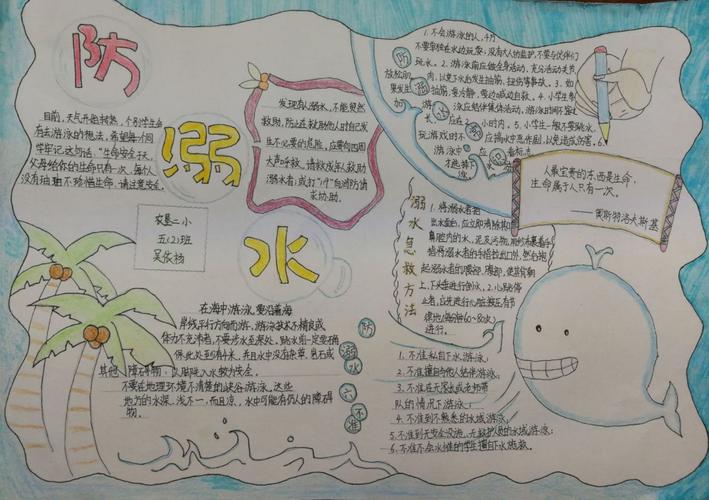 防
溺
水
目前，天气开始转热，个别学生会
有去游泳的想法，希望每个同
学牢记这句话："生命安全天，
父母给你的生命只有一次，每个人
没有理由不珍惜生命，请注意安全。
发现有人溺水，不能冒然
救助，防止在救助他人时自己发
生不必要的危险，应要向四周
大声呼救，请教成年人救助
溺水者，或打"110"向消防请
求协助。
二小
五(2)班
吴依
在海中游泳，要沿着海
岸线平行方向而游，游泳技术不精良或
体力不充沛者，不要涉水至深处，跳水前一定要确
保此处至少有3米，并且水中没有杂草、岩石或
其他障碍物，以脚陆入水较为安全。
不要在地理环境不清楚的峡谷游泳。这些
地方的水深，浅不一，而且凉，水中可能有伤人的障碍
物。
1.不会游泳的人，千万
不要单独在水边玩耍，没有大人的监护，不要与伙伴们
玩水。2.游泳前应做全身活动，充分活动关节
放松肌肉，以免下水后发生抽筋、扭伤等事故。3.如
果发生抽筋，要冷静，要边呼边自救。4.小学生参
加游泳应结伴集体活动，游泳时间不宜过
长，应在小时内。5.小学生一般不要跳水，
玩游戏时不应搞水中恶作剧，以免造成伤害。6.
游泳中
防
游
人最宝贵的东西是生命，
生命属于人只有一次。
——奥斯特洛夫斯基
溺水急救方法
1.将溺水者抬
出水面后，应立即清除其口、
鼻腔内的水，泥及污物，用纱布裹着手
指将溺水者的手指拉出口外，然后抱
起溺水者的腰部、腹部，使其背朝
上、下头垂进行倒水。2.心跳停
止者，应先进行心脏按压有节
律地(每分钟60-80次)
进行。
防溺水六不准
1.不准私自下水游泳；
2.不准擅自与他人结伴游泳；
3.不准在无家长或老师带
队的情况下游泳；
4.不准到不熟悉的水域游泳；
5.不准到无安全设施、无救护人员的水域游泳；
6.不准不会水性的学生擅自下水施救。